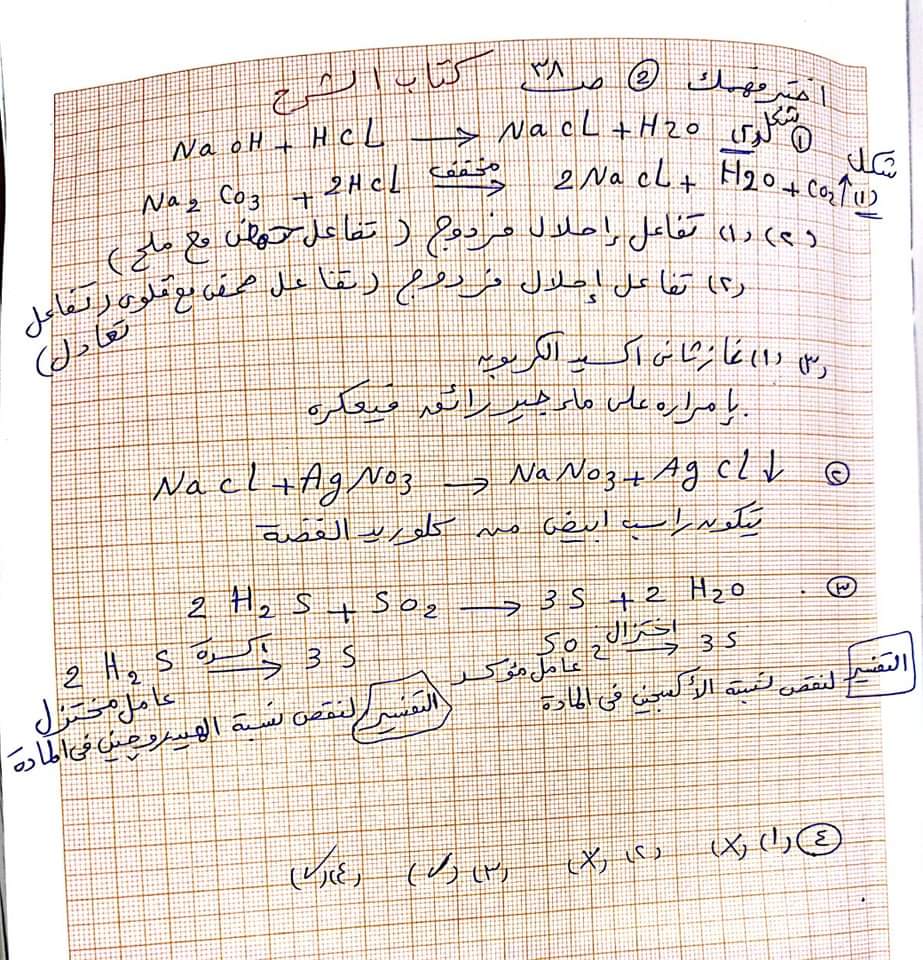 اختبر فهمك ② ص ٣٨ كتاب الشرح
① شكل (٢) NaOH + HCl → NaCl + H2O
شكل (١) Na2CO3 + 2HCl مخفف → 2NaCl + H2O + CO2↑
(٢) (١) تفاعل إحلال مزدوج (تفاعل حمض مع ملح)
(٢) تفاعل إحلال مزدوج (تفاعل حمض مع قلوى) (تفاعل
تعادل)
(٣) (١) غاز ثانى اكسيد الكربون
بإمراره على ماء جير رائق فيعكره.
② NaCl + AgNO3 → NaNO3 + AgCl↓
يتكون راسب ابيض من كلوريد الفضة
③ 2H2S + SO2 → 3S + 2H2O
SO2 اختزال → 3S
عامل مؤكسد
التفسير لنقص نسبة الأكسجين فى المادة
2H2S أكسدة → 3S
عامل مختزل
التفسير لنقص نسبة الهيدروجين فى المادة
④ (١) (X) (٢) (X) (٣) (✓) (٤) (✓)